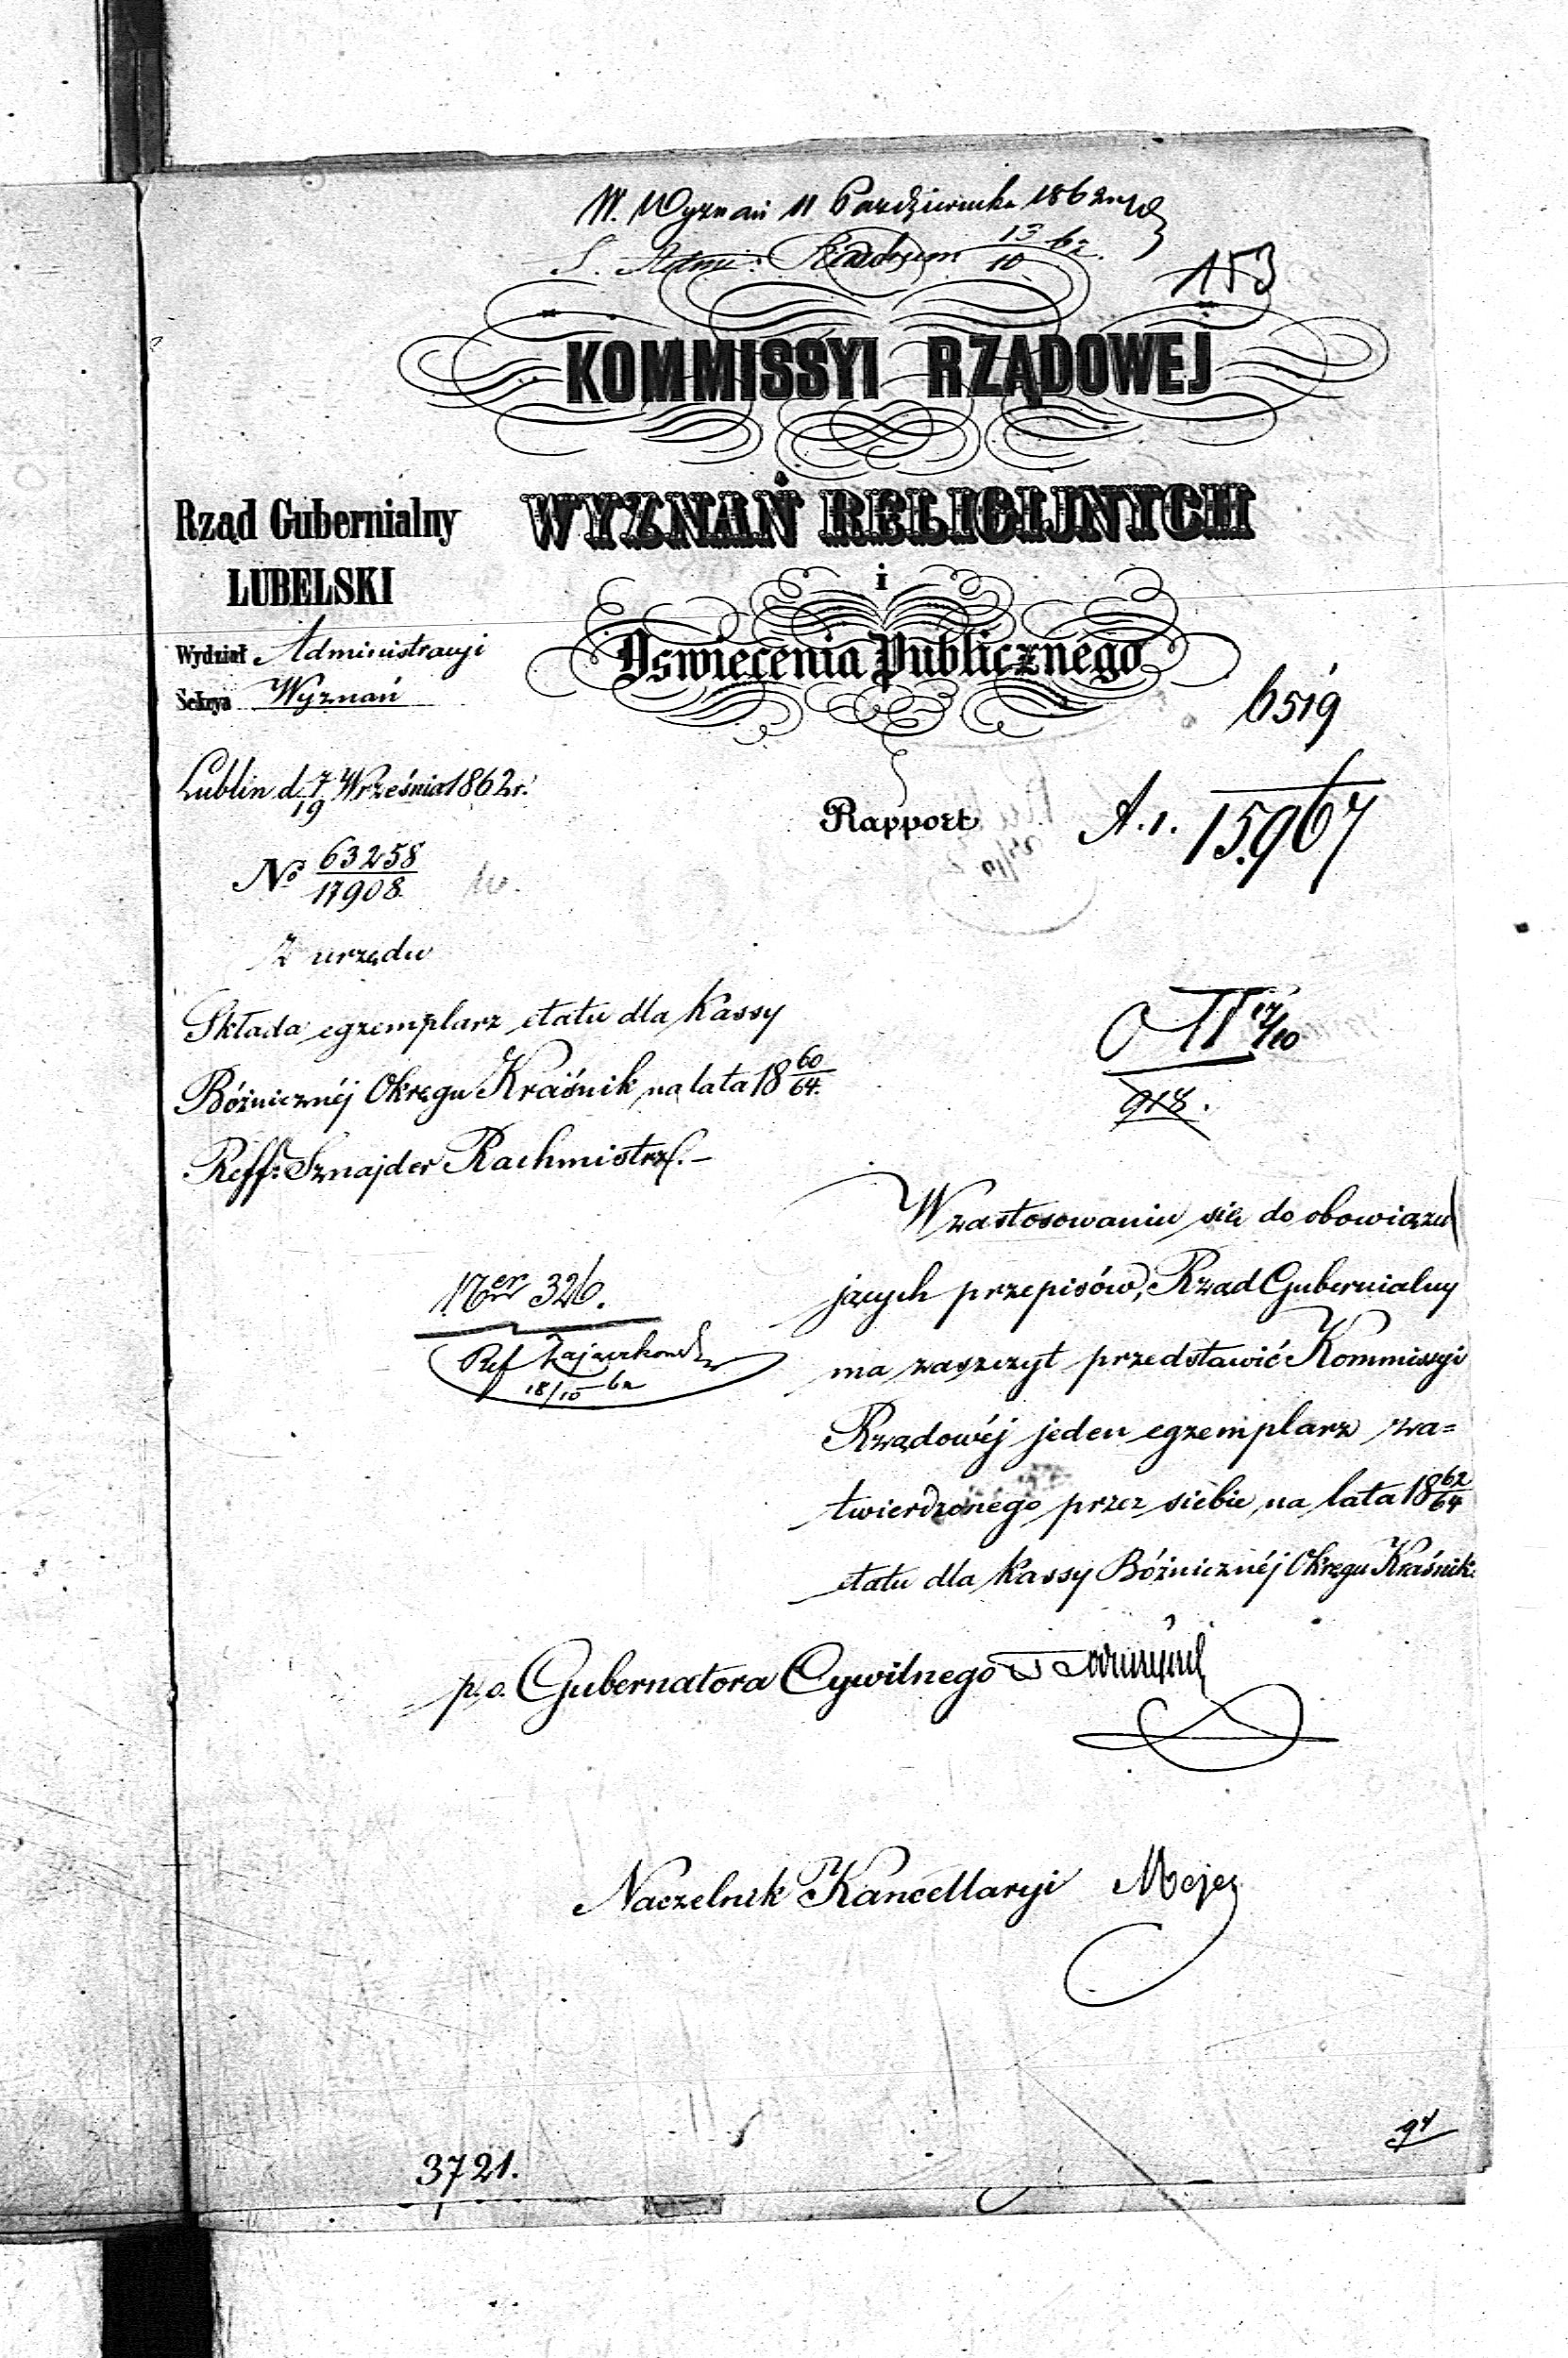 W. Wyznań 11 Października 1862
13/10 62.
153
KOMMISSYI RZĄDOWEJ
WYZNAŃ RELIGIJNYCH
i
Oświecenia Publicznego
Rząd Gubernialny
LUBELSKI
Wydział Administracyi
Sekcya Wyznań
6519
Lublin d. 7/19 Września 1862 r.
Rapport
A. 1. 15967
No 63258/17908.
Z urzędu
Składa egzemplarz etatu dla Kassy
Bóżnicznéj Okręgu Kraśnik na lata 18 60/64.
Reff: Sznajder Rachmistrz. –
17/10
918.
W zastosowaniu się do obowiązu
jących przepisów, Rząd Gubernialny
ma zaszczyt przedstawić Kommissyi
Rządowéj jeden egzemplarz za=
twierdzonego przez siebie, na lata 18 62/64
etatu dla Kassy Bóżnicznéj Okręgu Kraśnik.
326.
Ref
18/10 62
p. o. Gubernatora Cywilnego
Naczelnik Kancellaryi
3721.